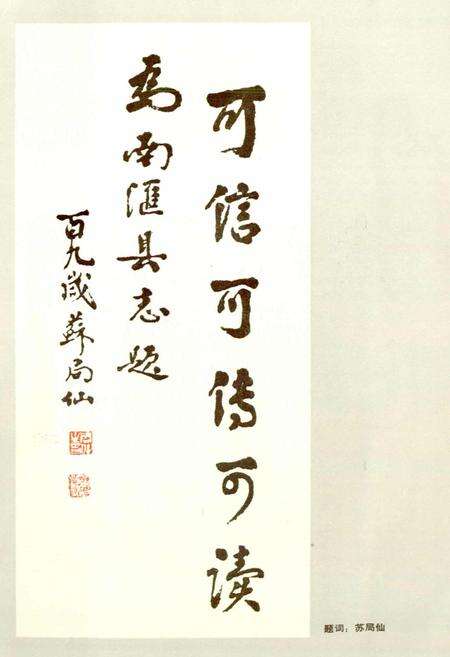 可信可传可读
为南匯县志题
百九岁蘇局仙
题词：苏局仙